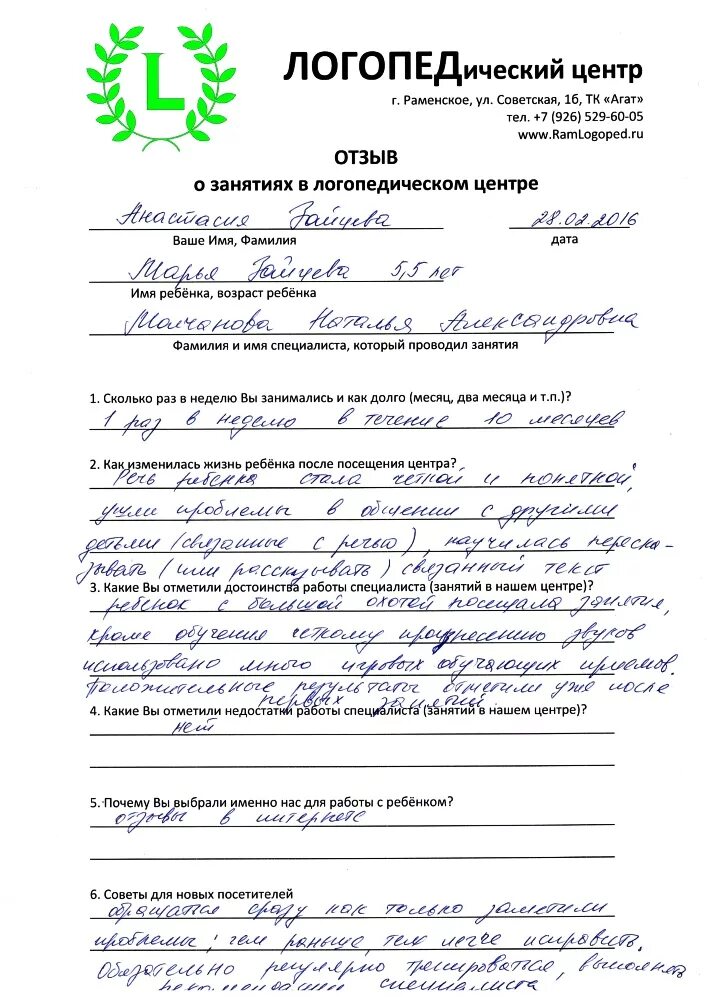 L
ЛОГОПЕДический центр
г. Раменское, ул. Советская, 1б, ТК «Агат»
тел. +7 (926) 529-60-05
www.RamLogoped.ru
ОТЗЫВ
о занятиях в логопедическом центре
Анастасия Зайцева 28.02.2016
Ваше Имя, Фамилия дата
Марья Зайцева 5,5 лет
Имя ребёнка, возраст ребёнка
Молчанова Наталья Александровна
Фамилия и имя специалиста, который проводил занятия
1. Сколько раз в неделю Вы занимались и как долго (месяц, два месяца и т.п.)?
1 раз в неделю в течение 10 месяцев
2. Как изменилась жизнь ребёнка после посещения центра?
Речь ребенка стала четкой и понятной,
ушли проблемы в общении с другими
детьми (связанные с речью), научилась переска-
зывать (или рассказывать) связанный текст
3. Какие Вы отметили достоинства работы специалиста (занятий в нашем центре)?
ребенок с большой охотой посещала занятия,
кроме обучения четкому произнесению звуков
использовано много игровых обучающих приемов.
Положительные результаты отметили уже после
первых занятий.
4. Какие Вы отметили недостатки работы специалиста (занятий в нашем центре)?
нет
5. Почему Вы выбрали именно нас для работы с ребёнком?
отзывы в интернете
6. Советы для новых посетителей
обращаться сразу как только заметили
проблемы; чем раньше, тем легче исправить.
Обязательно регулярно тренироваться, выполнять
специалиста